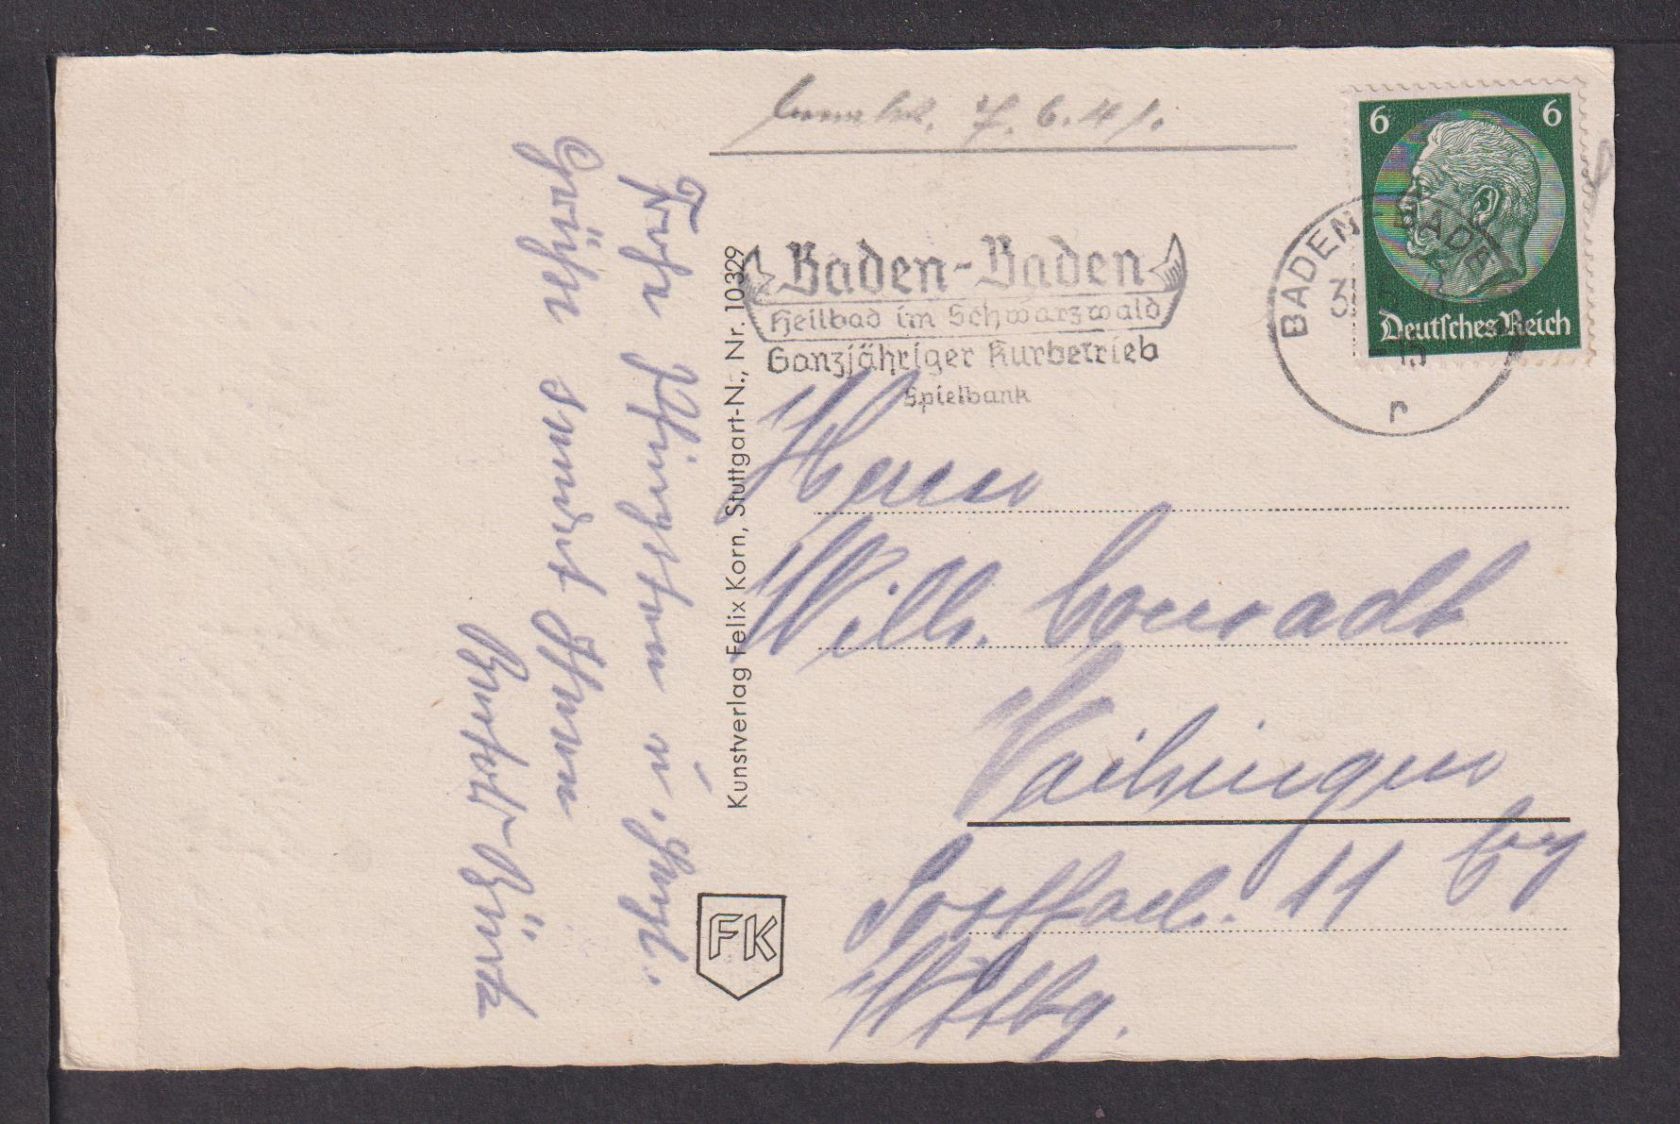 beantw. 7.6.41.
6 6
Deutsches Reich
BADEN-BADEN
r
Baden-Baden
Heilbad im Schwarzwald
Ganzjähriger Kurbetrieb
Spielbank
Frohe Pfingsten u. herzl.
Grüße sendet Ihnen
Kunstverlag Felix Korn, Stuttgart-N., Nr. 10329
FK
Herrn
Wilh. Conradt
Vaihingen
Postfach 11
Wttbg.